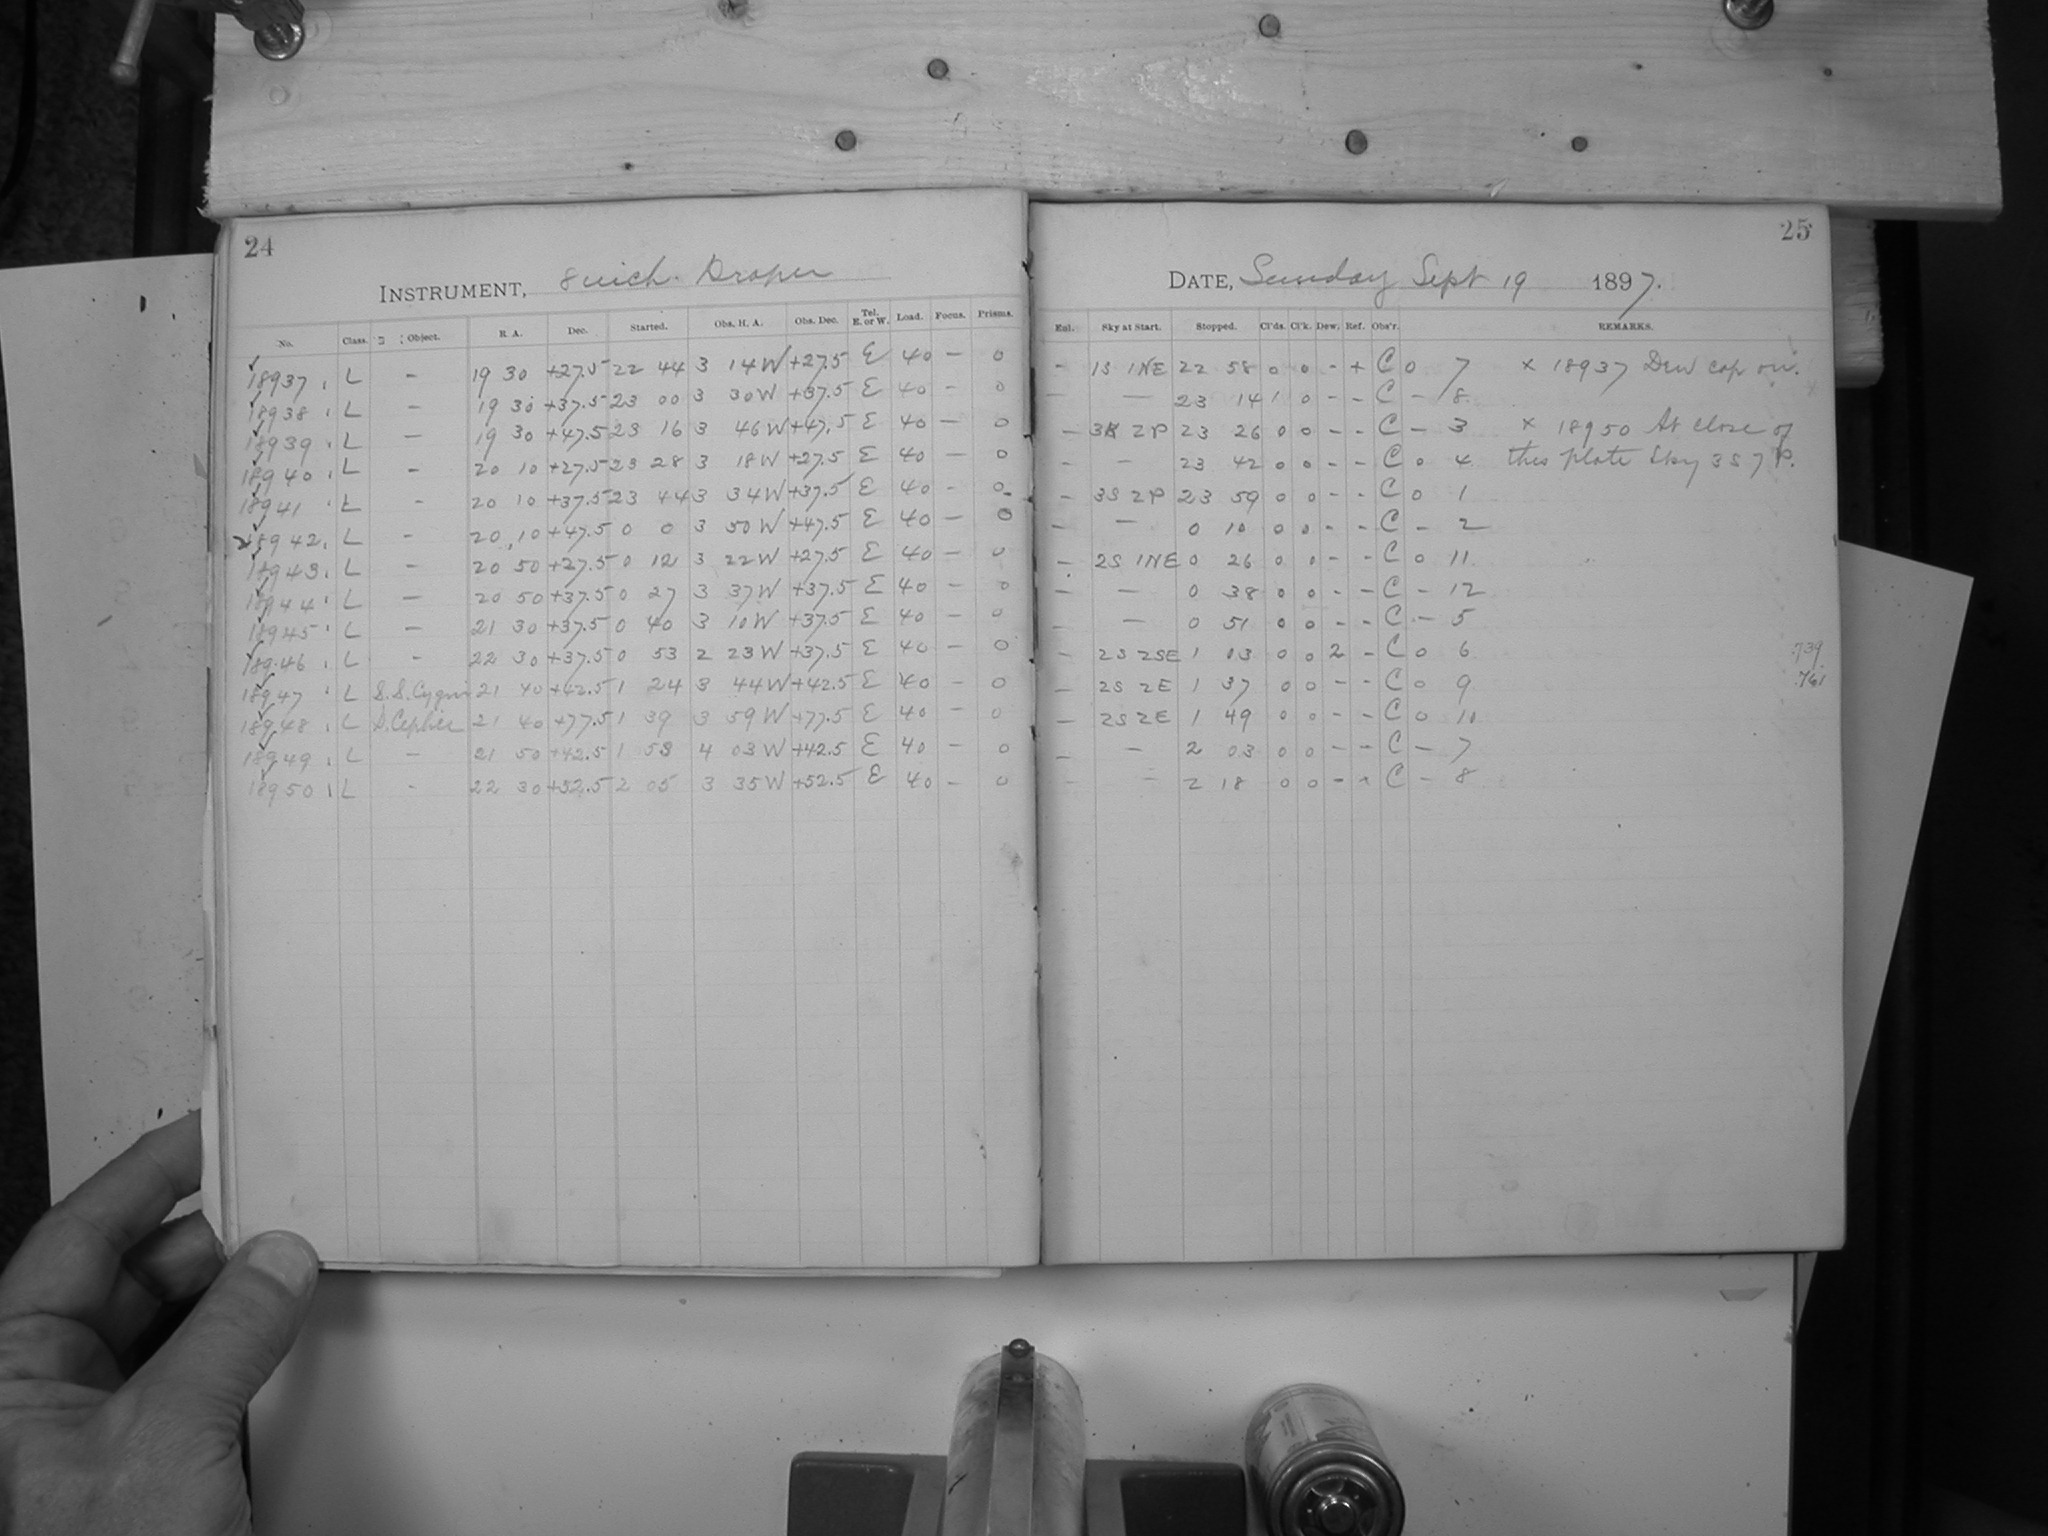 24
INSTRUMENT, 8 inch. Draper
No. Class. Object. R. A. Dec. Started. Obs. H. A. Obs. Dec. Tel. E. or W. Load. Focus. Prisms.
18937 L - 19 30 +27.5 22 44 3 14W +27.5 E 40 - 0
18938 L - 19 30 +37.5 23 00 3 30W +37.5 E 40 - 0
18939 L - 19 30 +47.5 23 16 3 46W +47.5 E 40 - 0
18940 L - 20 10 +27.5 23 28 3 18W +27.5 E 40 - 0
18941 L - 20 10 +37.5 23 44 3 34W +37.5 E 40 - 0
18942 L - 20 10 +47.5 0 0 3 50W +47.5 E 40 - 0
18943 L - 20 50 +27.5 0 12 3 22W +27.5 E 40 - 0
18944 L - 20 50 +37.5 0 27 3 37W +37.5 E 40 - 0
18945 L - 21 30 +37.5 0 40 3 10W +37.5 E 40 - 0
18946 L - 22 30 +37.5 0 53 2 23W +37.5 E 40 - 0
18947 L S.S. Cygni 21 40 +42.5 1 24 3 44W +42.5 E 40 - 0
18948 L S. Cephei 21 40 +77.5 1 39 3 59W +77.5 E 40 - 0
18949 L - 21 50 +42.5 1 53 4 03W +42.5 E 40 - 0
18950 L - 22 30 +52.5 2 05 3 35W +52.5 E 40 - 0
25
DATE, Sunday Sept 19 1897.
Enl. Sky at Start. Stopped. Cl'ds. Cl'k. Dew. Ref. Obs'r. REMARKS.
- 1S 1NE 22 58 0 0 - + C 0 7 × 18937 Dew cap on.
- - 23 14 1 0 - - C - 8
- 2P 23 26 0 0 - - C - 3 × 18950 At close of
- - 23 42 0 0 - - C 0 4 this plate Sky 3S 7P.
- 3S 2P 23 59 0 0 - - C 0 1
- - 0 10 0 0 - - C - 2
- 2S 1NE 0 26 0 0 - - C 0 11
- - 0 38 0 0 - - C - 12
- - 0 51 0 0 - - C - 5
- 2S 2SE 1 03 0 0 2 - C 0 6 .739
- 2S 2E 1 37 0 0 - - C 0 9 .761
- 2S 2E 1 49 0 0 - - C 0 10
- - 2 03 0 0 - - C - 7
- - 2 18 0 0 - - C - 8